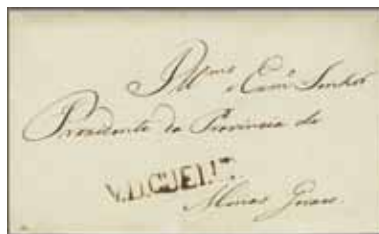 Illmo e Exmo Senhor
Presidente da Provincia de
Minas Geraes